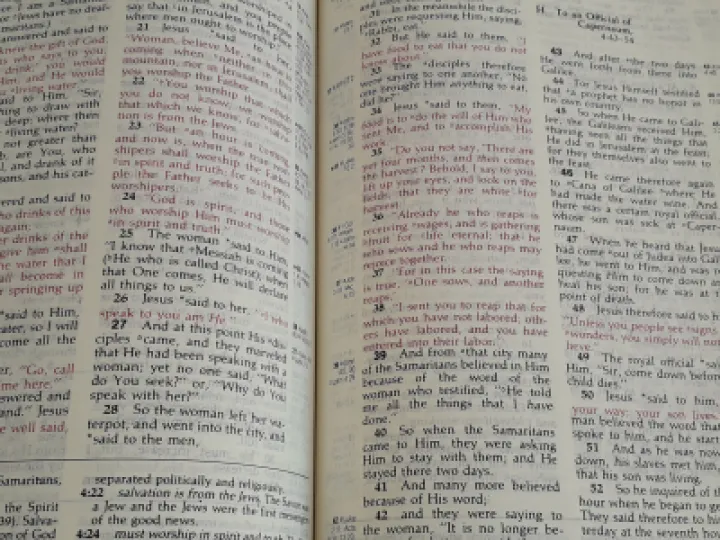 er I am a Sama-
Jews have no deal-
maritans.)
answered and said to
knew the gift of God,
who says to you,
drink," you would
Him, and He would
"living water."
said to Him, "Sir,
ing to draw with
deep; where then
living water?
not greater than
b, are You, who
l, and drank of it
sons, and his cat-
ered and said to
who drinks of this
again;
er drinks of the
give him shall
the water that I
all become in
springing up
said to Him,
ater, so I will
come all the
er, "Go, call
me here."
answered and
and." Jesus
e well said,
Samaritans,
the Spirit
39). Salva-
on of God
say that in Jerusalem is the place
where men ought to worship."
21 Jesus *said to her,
"Woman, believe Me,
coming when neither in this
mountain, nor in Jerusalem,
you worship the Father.
22 "You worship that which
you do not know; we worship
that which we know, for salva-
tion is from the Jews.
23 "But an hour is coming,
and now is, when the true wor-
shipers shall worship the Father
in spirit and truth; for such peo-
ple the Father seeks to be His
worshipers.
24 "God is spirit, and those
who worship Him must worship
in spirit and truth."
25 The woman *said to Him,
"I know that Messiah is coming
(He who is called Christ); when
that One comes, He will declare
all things to us."
26 Jesus *said to her, "I who
speak to you am He."
27 And at this point His dis-
ciples came, and they marveled
that He had been speaking with a
woman; yet no one said, "What
do You seek?" or, "Why do You
speak with her?"
28 So the woman left her wa-
terpot, and went into the city, and
*said to the men,
separated politically and religiously.
4:22 salvation is from the Jews. The Savior was
a Jew and the Jews were the first messengers
of the good news.
4:24 must worship in spirit and
31 In the meanwhile the disci-
ples were requesting Him, saying,
"Rabbi, eat."
32 But He said to them, "I
have food to eat that you do not
know about."
33 The disciples therefore
were saying to one another, "No
one brought Him anything to eat,
did he?"
34 Jesus *said to them, "My
food is to do the will of Him who
sent Me, and to accomplish His
work.
35 "Do you not say, 'There are
yet four months, and then comes
the harvest'? Behold, I say to you,
lift up your eyes, and look on the
fields, that they are white for
harvest.
36 "Already he who reaps is
receiving wages, and is gathering
fruit for life eternal; that he
who sows and he who reaps may
rejoice together.
37 "For in this case the saying
is true, 'One sows, and another
reaps.'
38 "I sent you to reap that for
which you have not labored; oth-
ers have labored, and you have
entered into their labor."
39 And from that city many
of the Samaritans believed in Him
because of the word of the
woman who testified, "He told
me all the things that I have
done."
40 So when the Samaritans
came to Him, they were asking
Him to stay with them; and He
stayed there two days.
41 And many more believed
because of His word;
42 and they were saying to
the woman, "It is no longer be-
H. To an Official of
Capernaum,
4:43-54
43 And after the two days
He went forth from there into
Galilee.
44 For Jesus Himself testified
that a prophet has no honor in
his own country.
45 So when He came to Gali-
lee, the Galileans received Him,
having seen all the things that
He did in Jerusalem at the feast;
for they themselves also went to
the feast.
46 He came therefore again
to Cana of Galilee where He
had made the water wine. And
there was a certain royal official,
whose son was sick at Caper-
naum.
47 When he heard that Jesus
had come out of Judea into Gali-
lee, he went to Him, and was re-
questing Him to come down and
heal his son; for he was at the
point of death.
48 Jesus therefore said to him,
"Unless you people see signs and
wonders, you simply will not be-
lieve."
49 The royal official *said to
Him, "Sir, come down before
child dies."
50 Jesus *said to him,
your way; your son lives."
man believed the word that
spoke to him, and he start
51 And as he was now
down, his slaves met him,
that his son was living.
52 So he inquired of th
hour when he began to ge
They said therefore to hi
terday at the seventh ho